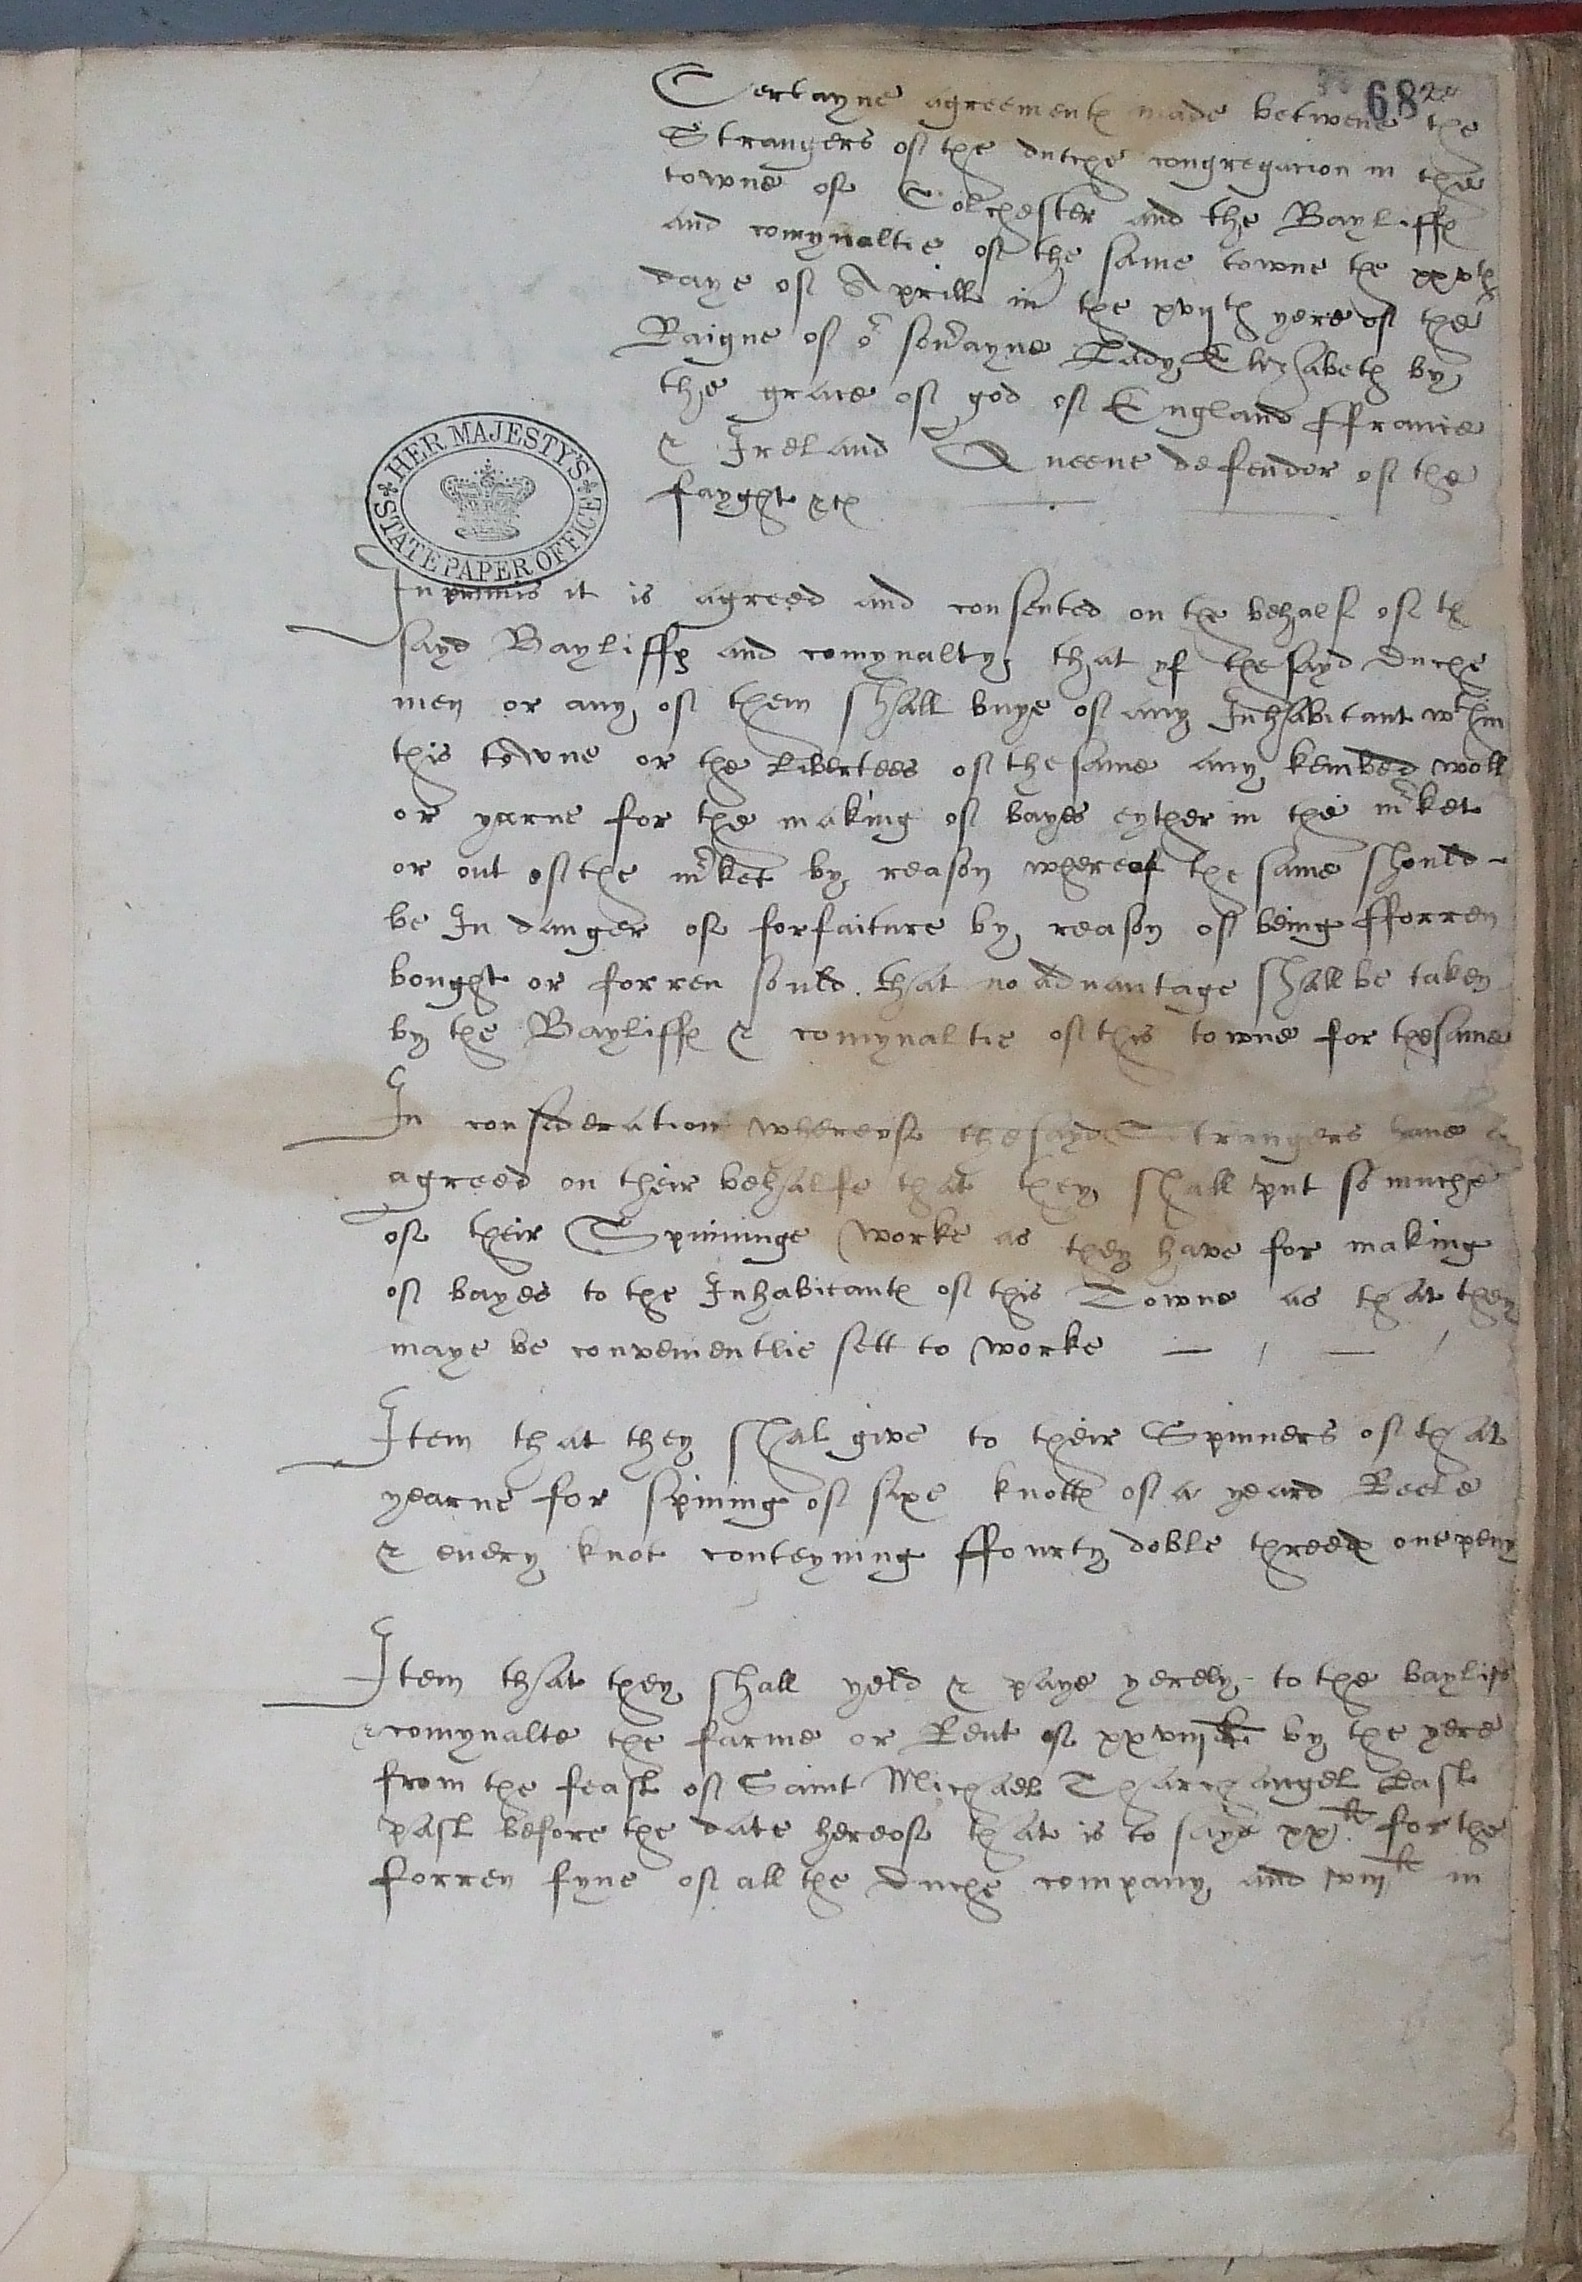 68
Certayne agreementes made betwene the
Strangers of the dutche congregacion in the
towne of Colchester and the Bayliffes
and comynaltie of the same towne the xxvth
daye of Aprill in the xvijth yere of the
Raigne of or sovrayne Lady Elizabeth by
the grace of god of England ffraunce
& Ireland Queene defendor of the
fayght &c
HER MAJESTY'S
STATE PAPER OFFICE
Inprimis it is agreed and consented on the behalf of the
sayd Bayliffes and comynalty that yf the sayd duche
men or any of them shall buye of any Inhabitant wthin
this towne or the Libertees of the same any kembed woll
or yarne for the making of bayes eyther in the mrket
or out of the mrket by reason whereof the same should
be In danger of forfaiture by reason of being fforren
bought or forren sould that no advantage shall be taken
by the Bayliffes & comynaltie of this towne for the same
In consideration whereof the sayd Strangers have
agreed on their behalfe that they shall put so muche
of their Spinninge worke as they have for making
of bayes to the Inhabitantes of this Towne as that they
maye be convenientlie sett to worke
Item that they shal give to their Spinners of that
yearne for spining of sixe knottes of a yeard Reele
& every knot conteyning ffourty doble threedes one peny
Item that they shall yeld & paye yerely to the baylifs
& comynalte the farme or Rent of xxviijli by the yere
from the feast of Saint Michael Tharchangel Last
past before the date hereof that is to saye xxli for the
forren fyne of all the duche company and viijli in